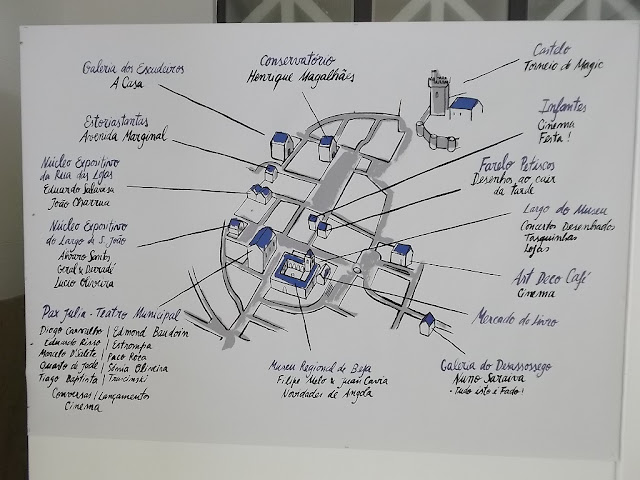 Galeria dos Escudeiros
A Casa
Conservatório
Henrique Magalhães
Castelo
Torneio de Magic
Estoriastantas
Avenida Marginal
Infantes
Cinema
Festa!
Núcleo Expositivo
da Rua das Lojas
Eduardo Salavisa
João Charrua
Farelo Petiscos
Desenhos ao cair
da tarde
Núcleo Expositivo
do Largo de S. João
Álvaro Santos
Geral & Derradé
Lucio Oliveira
Largo do Museu
Concertos Desenhados
Tasquinhas
Lojas
Art Deco Café
Cinema
Mercado do Livro
Pax Julia - Teatro Municipal
Diogo Carvalho / Edmond Baudoin
Eduardo Risso / Estrompa
Marcelo D'Salete / Paco Roca
Quarto de Jade / Sónia Oliveira
Tiago Baptista / Trncinski
Conversas / Lançamentos
Cinema
Museu Regional de Beja
Filipe Melo & Juan Cavia
Novidades de Angola
Galeria do Desassossego
Nuno Saraiva
- Tudo isto é Fado!